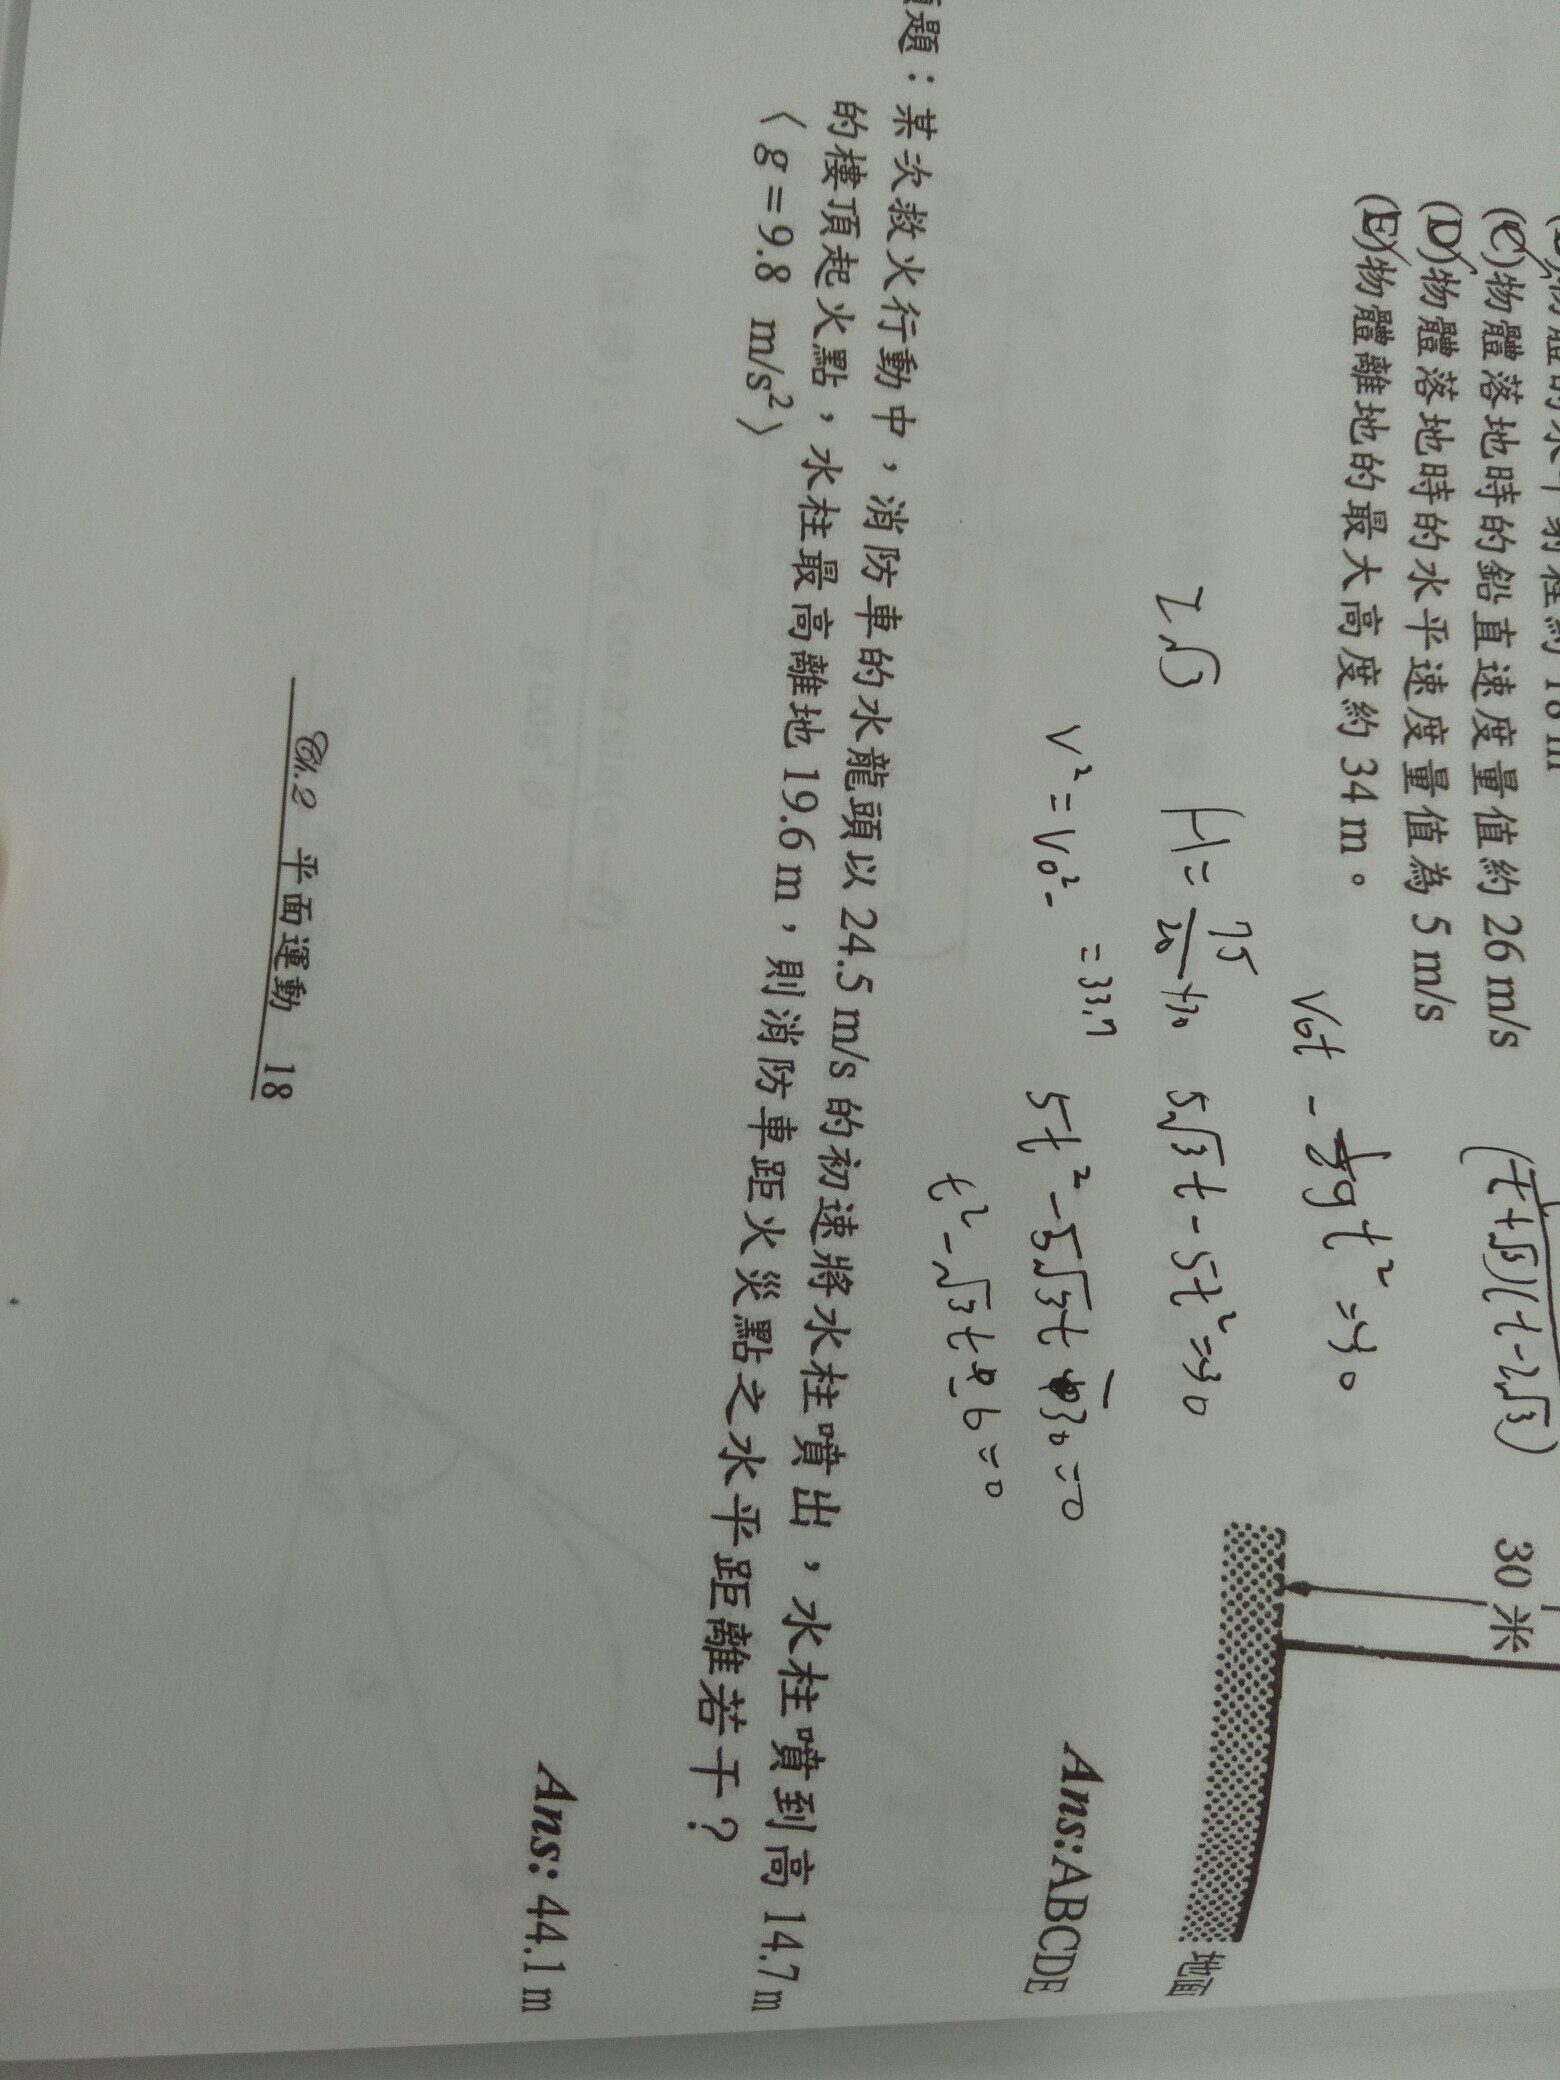 (C)物體落地時的鉛直速度量值約 26 m/s
(D)物體落地時的水平速度量值為 5 m/s
(E)物體離地的最大高度約 34 m。
(t+√3)(t-2√3)
30 米
V₀t - ½gt² = -30
2√3 H = 75/20 +30
5√3t - 5t² = -30
= 33.7
V² = V₀² -
5t² - 5√3t - 30 = 0
t² - √3t - 6 = 0
地面
Ans:ABCDE
題：某次救火行動中，消防車的水龍頭以 24.5 m/s 的初速將水柱噴出，水柱噴到高 14.7 m
的樓頂起火點，水柱最高離地 19.6 m，則消防車距火災點之水平距離若干？
〈 g = 9.8 m/s² 〉
Ans: 44.1 m
Ch.2 平面運動 18